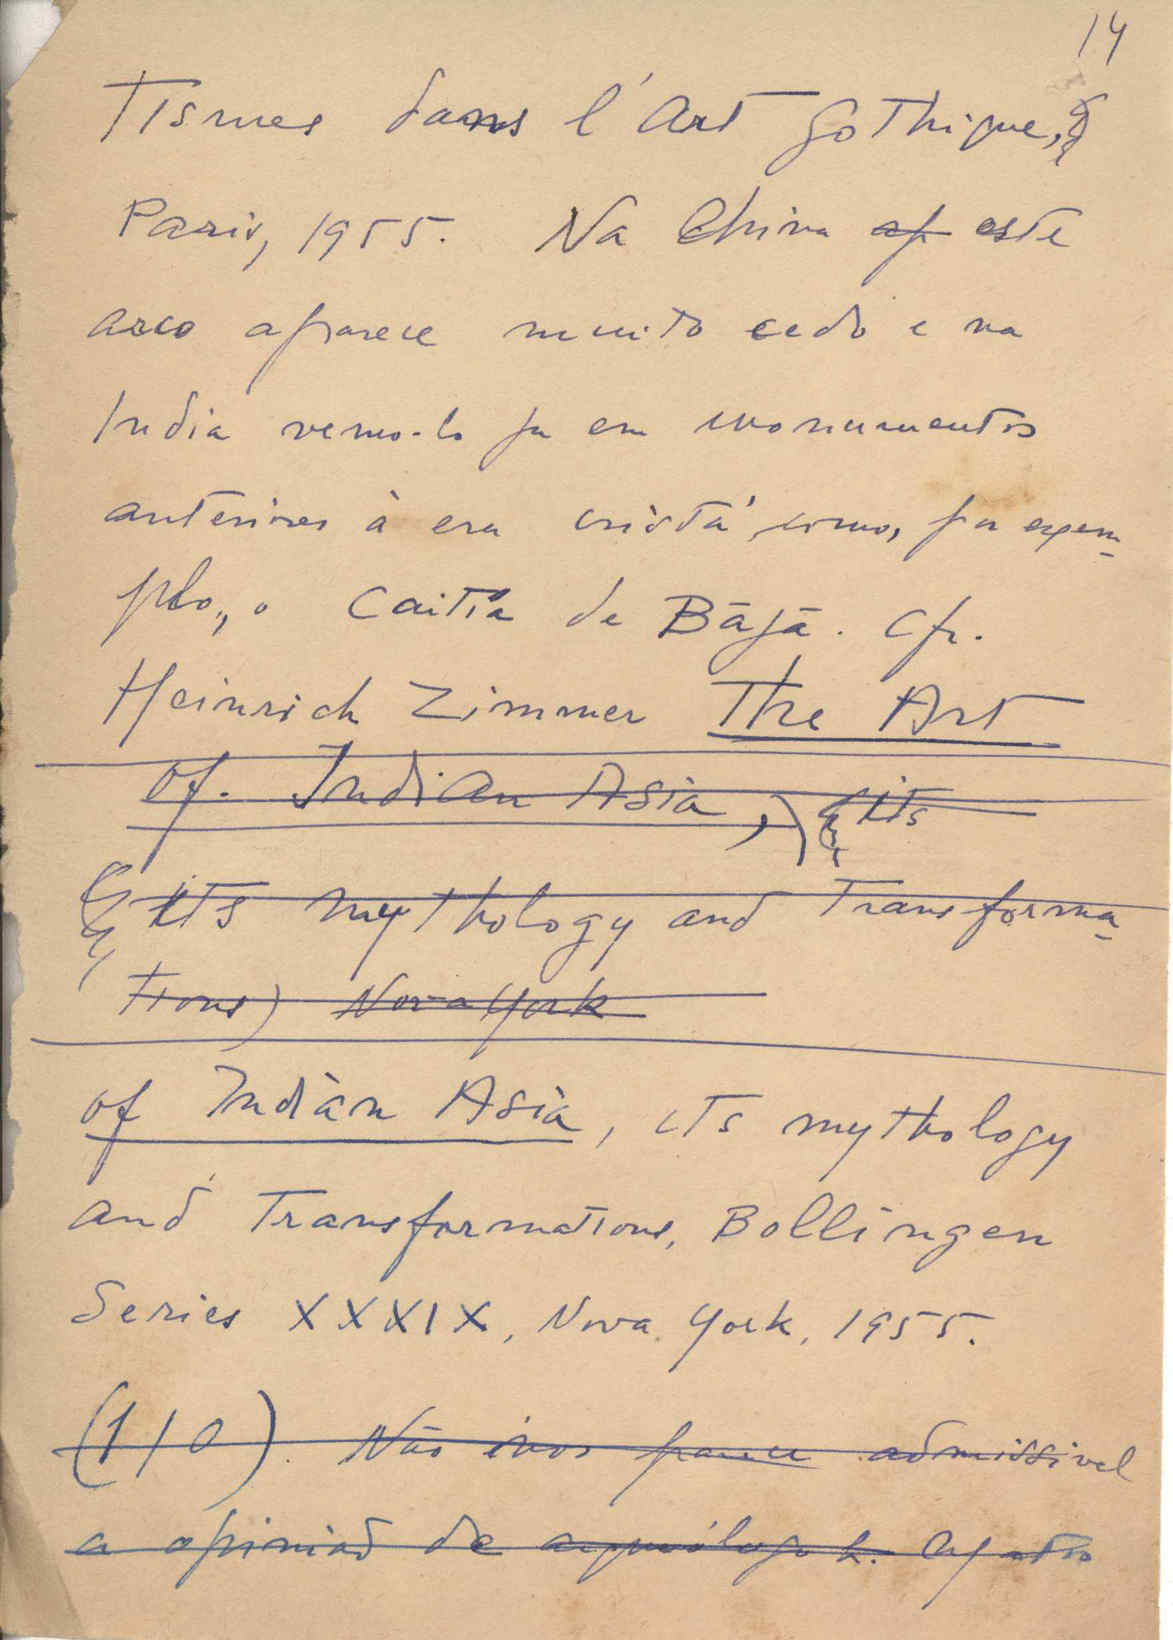 14
Tismes dans l'Art Gothique,
Paris, 1955. Na China ap este
arco aparece muito cedo e na
India vemo-lo ja em monumentos
anteriores à era cristã, como, por exem-
plo, o Caitia de Bājā. Cfr.
Heinrich Zimmer The Art
of Indian Asia, its
its mythology and Transforma-
tions) Nova York
of Indian Asia, its mythology
and Transformations, Bollingen
Series XXXIX, Nova York, 1955.
(110). Não nos parece admissivel
a opinião de